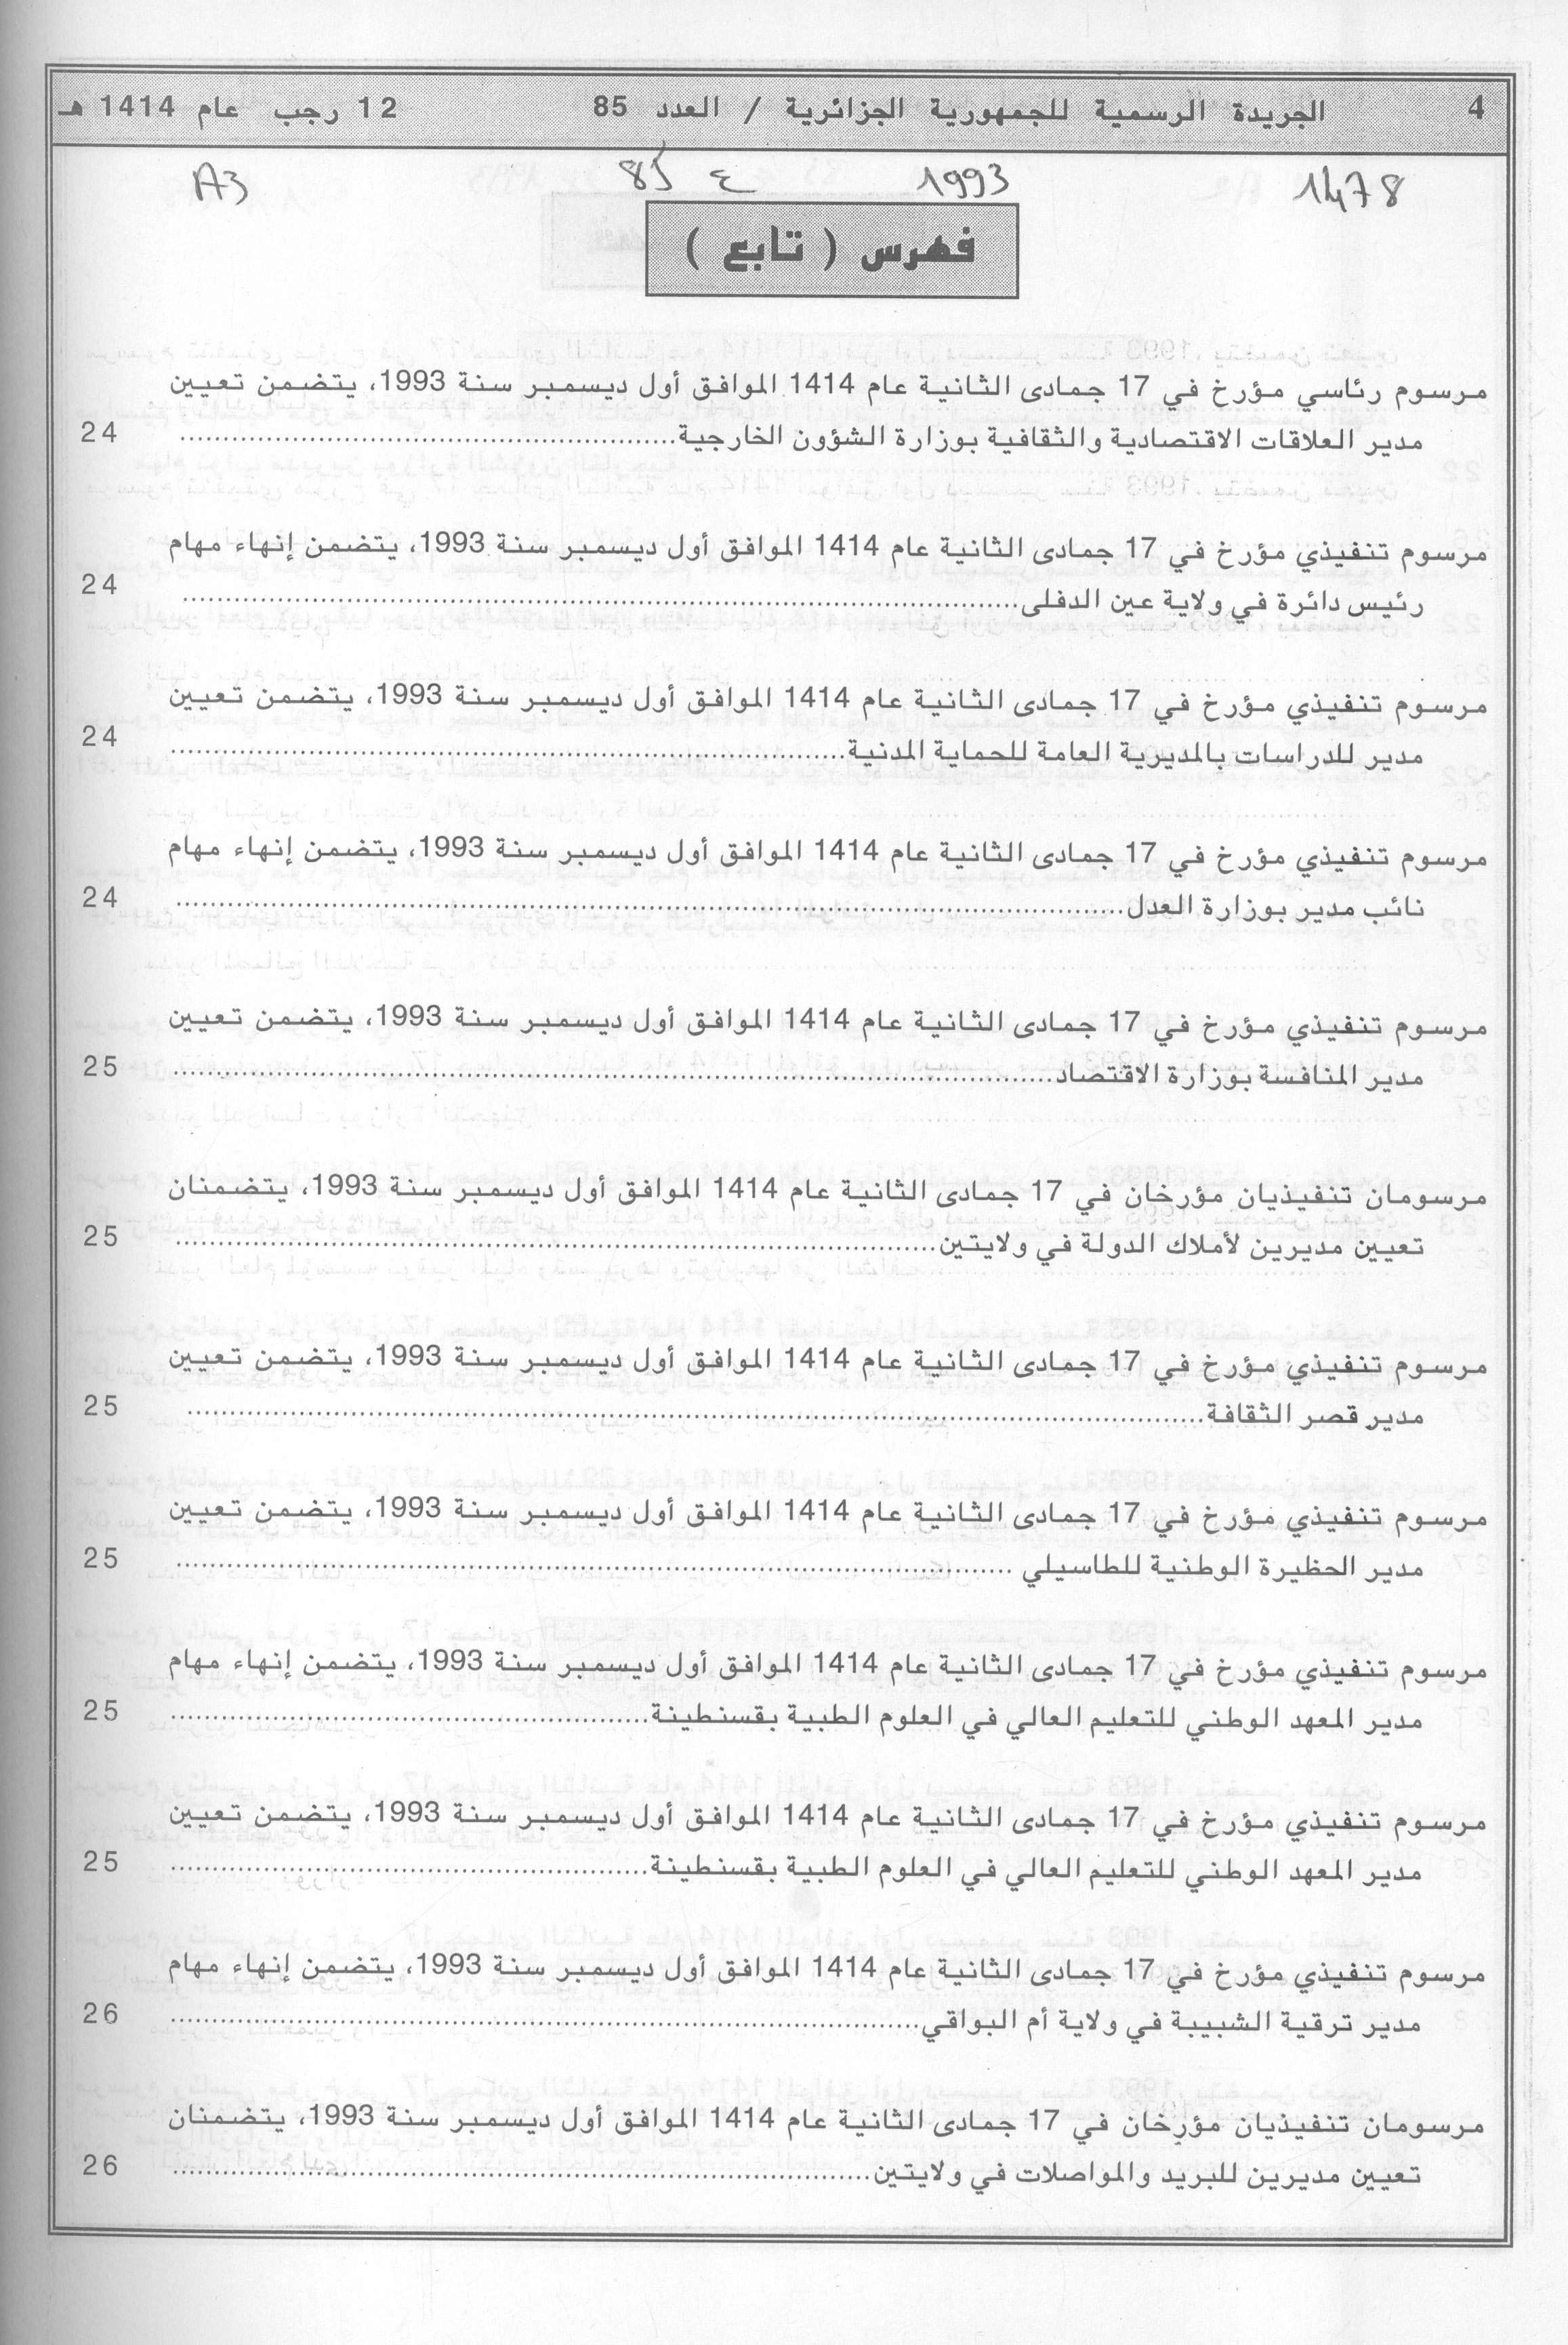 4 الجريدة الرسمية للجمهورية الجزائرية / العدد 85 12 رجب عام 1414 هـ
1478 1993 ع 85 A3
فهرس ( تابع )
مرسوم رئاسي مؤرخ في 17 جمادى الثانية عام 1414 الموافق أول ديسمبر سنة 1993، يتضمن تعيين
مدير العلاقات الاقتصادية والثقافية بوزارة الشؤون الخارجية 24
مرسوم تنفيذي مؤرخ في 17 جمادى الثانية عام 1414 الموافق أول ديسمبر سنة 1993، يتضمن إنهاء مهام
رئيس دائرة في ولاية عين الدفلى 24
مرسوم تنفيذي مؤرخ في 17 جمادى الثانية عام 1414 الموافق أول ديسمبر سنة 1993، يتضمن تعيين
مدير للدراسات بالمديرية العامة للحماية المدنية 24
مرسوم تنفيذي مؤرخ في 17 جمادى الثانية عام 1414 الموافق أول ديسمبر سنة 1993، يتضمن إنهاء مهام
نائب مدير بوزارة العدل 24
مرسوم تنفيذي مؤرخ في 17 جمادى الثانية عام 1414 الموافق أول ديسمبر سنة 1993، يتضمن تعيين
مدير المنافسة بوزارة الاقتصاد 25
مرسومان تنفيذيان مؤرخان في 17 جمادى الثانية عام 1414 الموافق أول ديسمبر سنة 1993، يتضمنان
تعيين مديرين لأملاك الدولة في ولايتين 25
مرسوم تنفيذي مؤرخ في 17 جمادى الثانية عام 1414 الموافق أول ديسمبر سنة 1993، يتضمن تعيين
مدير قصر الثقافة 25
مرسوم تنفيذي مؤرخ في 17 جمادى الثانية عام 1414 الموافق أول ديسمبر سنة 1993، يتضمن تعيين
مدير الحظيرة الوطنية للطاسيلي 25
مرسوم تنفيذي مؤرخ في 17 جمادى الثانية عام 1414 الموافق أول ديسمبر سنة 1993، يتضمن إنهاء مهام
مدير المعهد الوطني للتعليم العالي في العلوم الطبية بقسنطينة 25
مرسوم تنفيذي مؤرخ في 17 جمادى الثانية عام 1414 الموافق أول ديسمبر سنة 1993، يتضمن تعيين
مدير المعهد الوطني للتعليم العالي في العلوم الطبية بقسنطينة 25
مرسوم تنفيذي مؤرخ في 17 جمادى الثانية عام 1414 الموافق أول ديسمبر سنة 1993، يتضمن إنهاء مهام
مدير ترقية الشبيبة في ولاية أم البواقي 26
مرسومان تنفيذيان مؤرخان في 17 جمادى الثانية عام 1414 الموافق أول ديسمبر سنة 1993، يتضمنان
تعيين مديرين للبريد والمواصلات في ولايتين 26